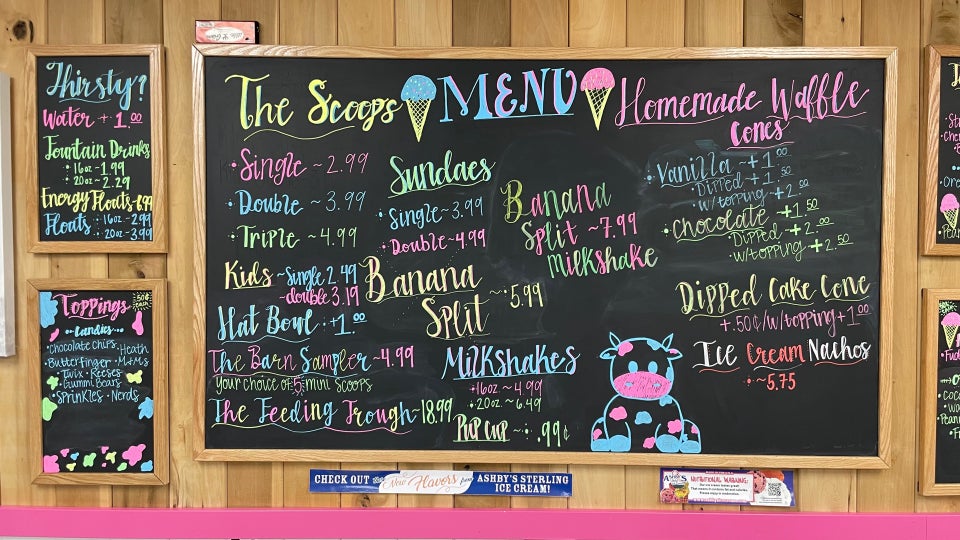 Thirsty?
Water + 1.00
Fountain Drinks
• 16oz ~ 1.99
• 20oz ~ 2.29
Energy Floats ~ 6.99
Floats : 16oz ~ 2.99
: 20oz ~ 3.99
Toppings 50¢ each
Candies
• Chocolate Chips • Heath
• Butterfinger • M&Ms
• Twix • Reeses
• Gummi Bears
• Sprinkles • Nerds
The Scoops
• Single ~ 2.99
• Double ~ 3.99
• Triple ~ 4.99
Kids ~ Single 2.49
~ double 3.19
Hat Bowl : +1.00
The Barn Sampler ~ 4.99
Your choice of 5 mini scoops
The Feeding Trough ~ 18.99
MENU
Sundaes
• Single ~ 3.99
• Double ~ 4.99
Banana
Split ~ 5.99
Milkshakes
• 16oz ~ 4.99
• 20oz ~ 6.49
Pup Cup ~ .99¢
Banana
Split ~ 7.99
Milkshake
Homemade Waffle
Cones
• Vanilla ~ +1.00
Dipped +1.00
w/topping +2.00
• Chocolate ~ +1.50
Dipped ~ +2.00
w/topping +2.50
Dipped Cake Cone
+.50¢/w/topping +1.00
Ice Cream Nachos
• ~ 5.75
CHECK OUT the New Flavors from ASHBY'S STERLING
ICE CREAM!
NUTRITIONAL WARNING: